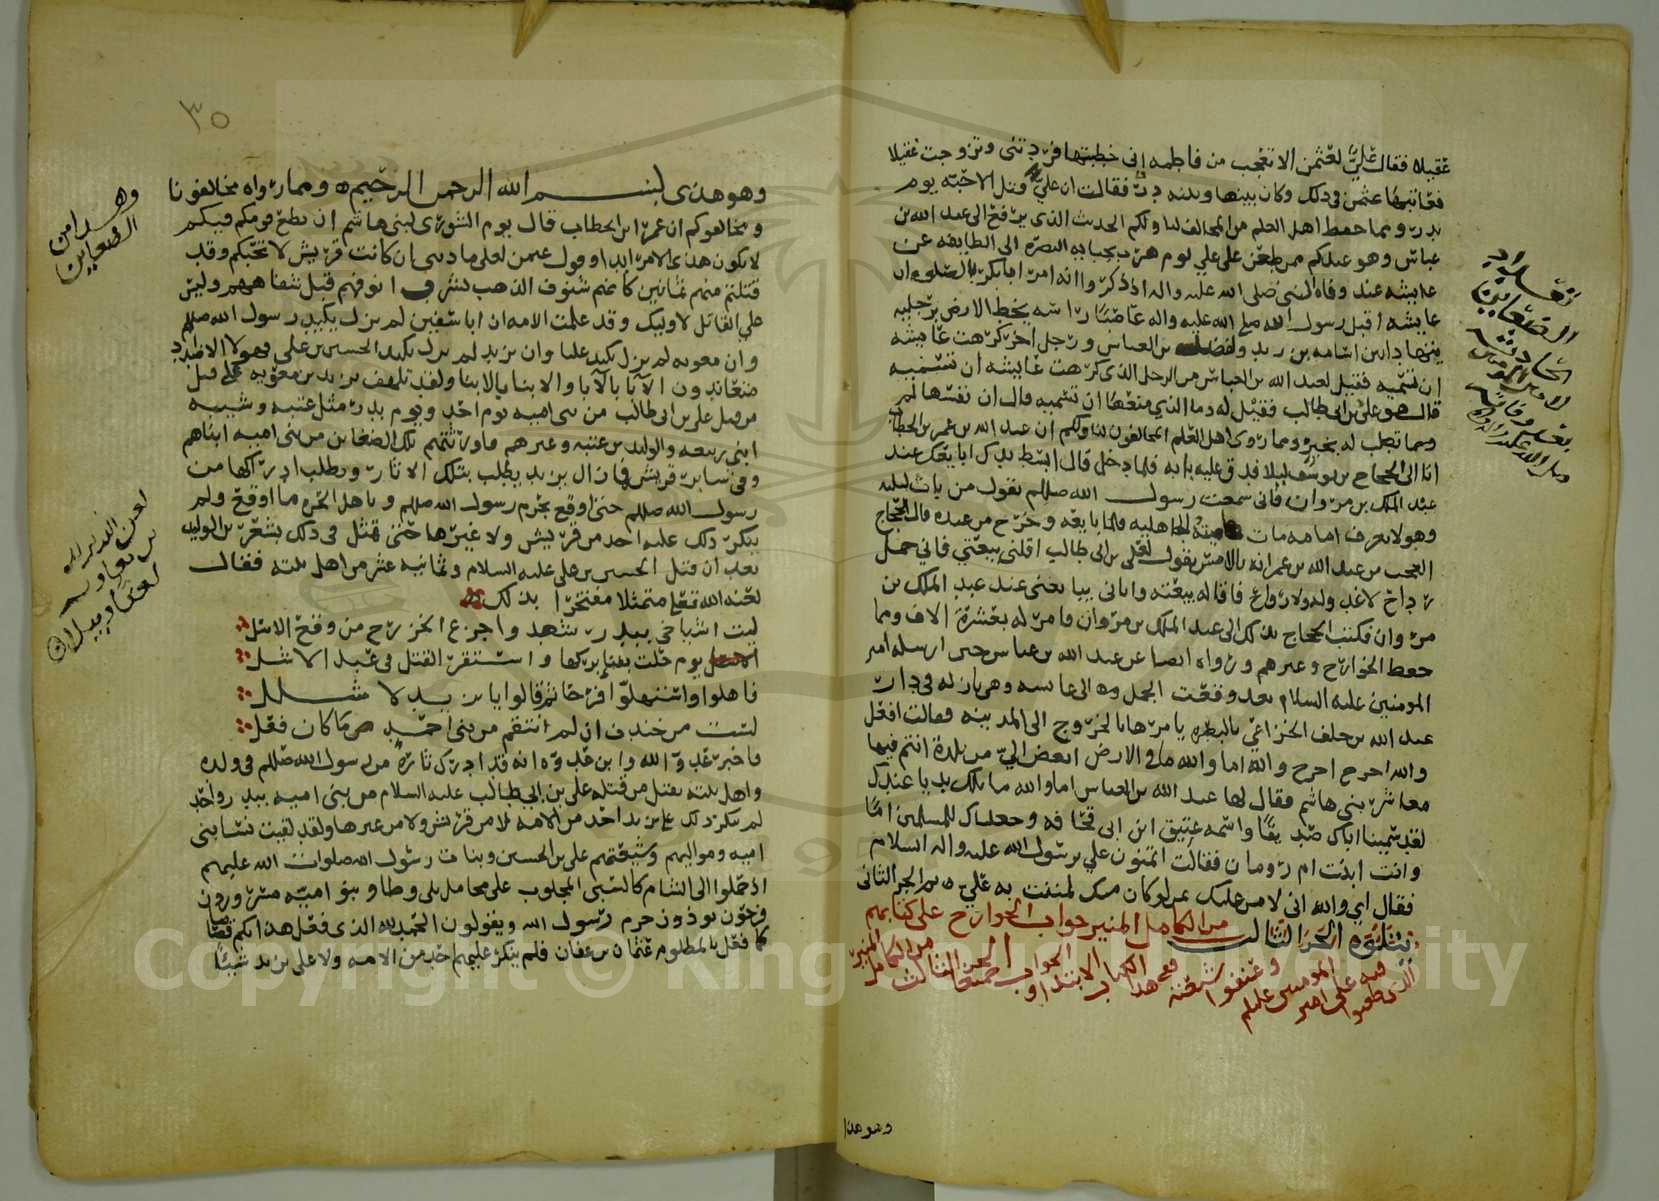 عقيلا فقال علي لعثمن الا تعجب من فاطمه اني خطبتها فردتني وتزوجت عقيلا
فعاتبها عثمن في ذلك وكان بينها وبينه فقالت ان علي قتل الاحبه يوم
بدر ومما حفظ اهل العلم من المخالف لنا ولكم الحديث الذي يرفع الى عبد الله بن
عباس وهو عندكم ممن طعن على علي يوم هرب بجبايه البصره الى الطايف عن
عايشه عند وفاة النبي صلى الله عليه واله اذ ذكروا انه امر ابا بكر بالصلوه ان
عايشه اقبل رسول الله صلى الله عليه واله عاصبا راسه يخط الارض برجليه
بين اسامه بن زيد والفضل بن العباس ورجل اخر كرهت عايشه
ان تسميه فقيل لعبد الله بن العباس من الرجل الذي كرهت عايشه ان تسميه
قال هو علي بن ابي طالب فقيل له وما الذي منعها ان تسميه قال ان نفسها لم
تطب له بخير ومما روى اهل العلم المخالفون لنا ولكم ان عبد الله بن عمر بن الخطاب
اتا الى الحجاج بن يوسف ليلا فدق عليه بابه فلما دخل قال ابسط يدك ابايعك عند
عبد الملك بن مروان فاني سمعت رسول الله صلعم يقول من بات ليله
وهو لا يعرف امامه مات ميته الجاهليه فلما بايعه وخرج من عنده قال الحجاج
العجب من عبد الله بن عمر انه بالامس يقول لعلي بن ابي طالب اقلني بيعتي فاني حمل
رداح لا غد ولا رواح فاقاله بيعته واتاني يبايعني عند عبد الملك بن
مروان فكتب الحجاج بذلك الى عبد الملك بن مروان فامر له بعشرة الاف ومما
حفظ الخوارج وغيرهم ورواه ايضا عن عبد الله بن عباس حين ارسله امير
المومنين عليه السلام بعد وقعت الجمل الى عايشه وهي نازله في دار
عبد الله بن خلف الخزاعي بالبصره يامرها بالخروج الى المدينه فقالت افعل
والله اخرج اخرج والله اما والله ما في الارض ابغض الي من بلدة انتم فيها
معاشر بني هاشم فقال لها عبد الله بن العباس اما والله ما تلك يد يا عندك
لقد سمينا اباك صديقا واسمه عتيق ابن ابي قحافه وجعلناك للمسلمين اما
وانت ابنت ام رومان فقالت اتمنون علي برسول الله عليه واله السلام
فقال اي والله اني لامن عليك بمن لوكان منك لمننت به علي ه تم الجز الثاني
من الكامل المنير جواب الخوارج على كتابهم
يتلوه الجز الثالث
الذي طعنوا فيه على امير المومنين عليلم وعنفوا شيعته
من الكامل المنير
وهو هذا
نقله ايراد
الضغاين
٣٥
وهو هذى بسم الله الرحمن الرحيم ه ومما رواه مخالفونا
ومخالفوكم ان عمر ابن الخطاب قال يوم الشورى لبني هاشم ان تطع قومكم فيكم
لا يكون هذى الامر ابدا وقول عثمن لعلي ما ذنبي ان كانت قريش لا تحبكم وقد
قتلتم منهم ثمانين كانهم شنوف الذهب تشرب انوفهم قبل شفاههم وليس
علي القاتل لاوليك وقد علمت الامه ان ابا سفين لم يزل يكيد رسول الله صلعم
وان معويه لم يزل يكيد عليا وان يزيد لم يزل يكيد الحسين بن علي وهولا الاضداد
متعاندون الآبا بالآبا والابنا بالابنا ولقد تلهف يزيد بن معويه على قتل
من قتل علي بن ابي طالب من بني اميه يوم احد ويوم بدر مثل عتبه وشيبه
ابني ربيعه والوليد بن عتبه وغيرهم فاورثتهم تلك الضغاين من بني اميه ابناهم
وفي ساير قريش فما زال يزيد يطلب بتلك الاثار ويطلب ادراكها من
رسول الله صلعم حتى اوقع بحرم رسول الله صلعم وباهل الحره ما اوقع ولم
ينكر ذلك عليه احد من قريش ولا غيرها حتى تمثل في ذلك بشعر بن الوليد
بعد ان قتل الحسين بن علي عليه السلام وثمانيه عشر من اهل بيته فقال
لعنه الله تعلى متمثلا مفتخرا بذلك
ليت اشياخي ببدر شهدوا جزع الخزرج من وقع الاسل
يوم حلت بقنا بركها واستقر القتل في عبد الاشل
فاهلوا واستهلوا فرحا ثم قالوا يا يزيد لا شلل
لست من خندف ان لم انتقم من بني احمد ما كان فعل
فاخبر عدو الله وابن عدوه انه قد ادرك ثاره من رسول الله صلعم في ولده
واهل بيته بقتل من قتله علي بن ابي طالب عليه السلام من بني اميه ببدر واحد
لم ينكر ذلك على يزيد احد من الامه لا من قريش ولا من غيرها ولقد لقيت نسا بني
اميه ومواليهم وشيعتهم علي بن الحسين وبنات رسول الله صلوات الله عليهم
اذ حملوا الى الشام كالسبي المجلوب على محامل بلى وطا وبنو اميه مسرورون
فرحون يوذون حرم رسول الله ويقولون الحمد لله الذي فعل هذا بكم قصاصا
كما فعل بالمظلوم عثمان بن عفان فلم ينكر عليهم احد من الامه ولا على يزيد شيئا
وهذا من
الضغاين
لعن الله يزيد
بن معاويه
Copyright © King Saud University